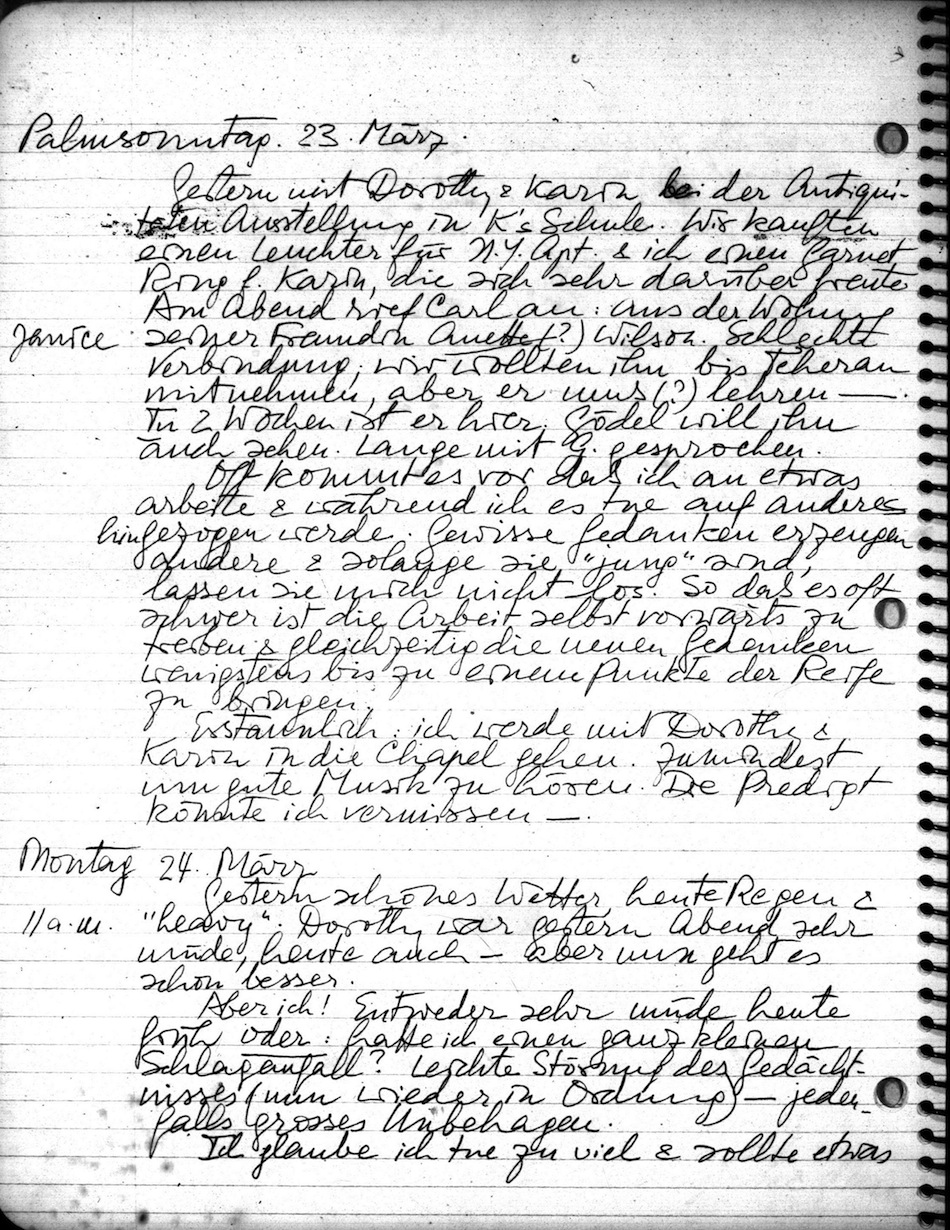 Palmsonntag. 23. März.
Gestern mit Dorothy & Karin bei der Antiqui-
täten Ausstellung in K's Schule. Wir kauften
einen Leuchter für N.Y. Apt. & ich einen Garnet
Ring f. Karin, die sich sehr darüber freute
Am Abend rief Carl an: aus der Wohnung
Janice seiner Freundin (?) Wilson. Schlechte
Verbindung; wir wollten ihn bis Teheran
mitnehmen, aber er muss (?) lehren —.
In 2 Wochen ist er hier. Gödel will ihn
auch sehen. Lange mit G. gesprochen.
Oft kommt es vor daß ich an etwas
arbeite & während ich es tue auf anderes
hingezogen werde. Gewisse Gedanken erzeugen
andere & solange sie "jung" sind,
lassen sie mich nicht los. So daß es oft
schwer ist die Arbeit selbst vorwärts zu
treiben & gleichzeitig die neuen Gedanken
wenigstens bis zu einem Punkte der Reife
zu bringen.
Erstaunlich: ich werde mit Dorothy &
Karin in die Chapel gehen. Zumindest
um gute Musik zu hören. Die Predigt
könnte ich vermissen —.
Montag 24. März
Gestern schönes Wetter, heute Regen &
11 a.m. "heavy". Dorothy war gestern Abend sehr
müde, heute auch – aber nun geht es
schon besser.
Aber ich! Entweder sehr müde heute
früh oder: hatte ich einen ganz kleinen
Schlaganfall? Leichte Störung des Gedächt-
nisses (nun wieder in Ordnung) – jeden-
falls grosses Unbehagen.
Ich glaube ich tue zu viel & sollte etwas